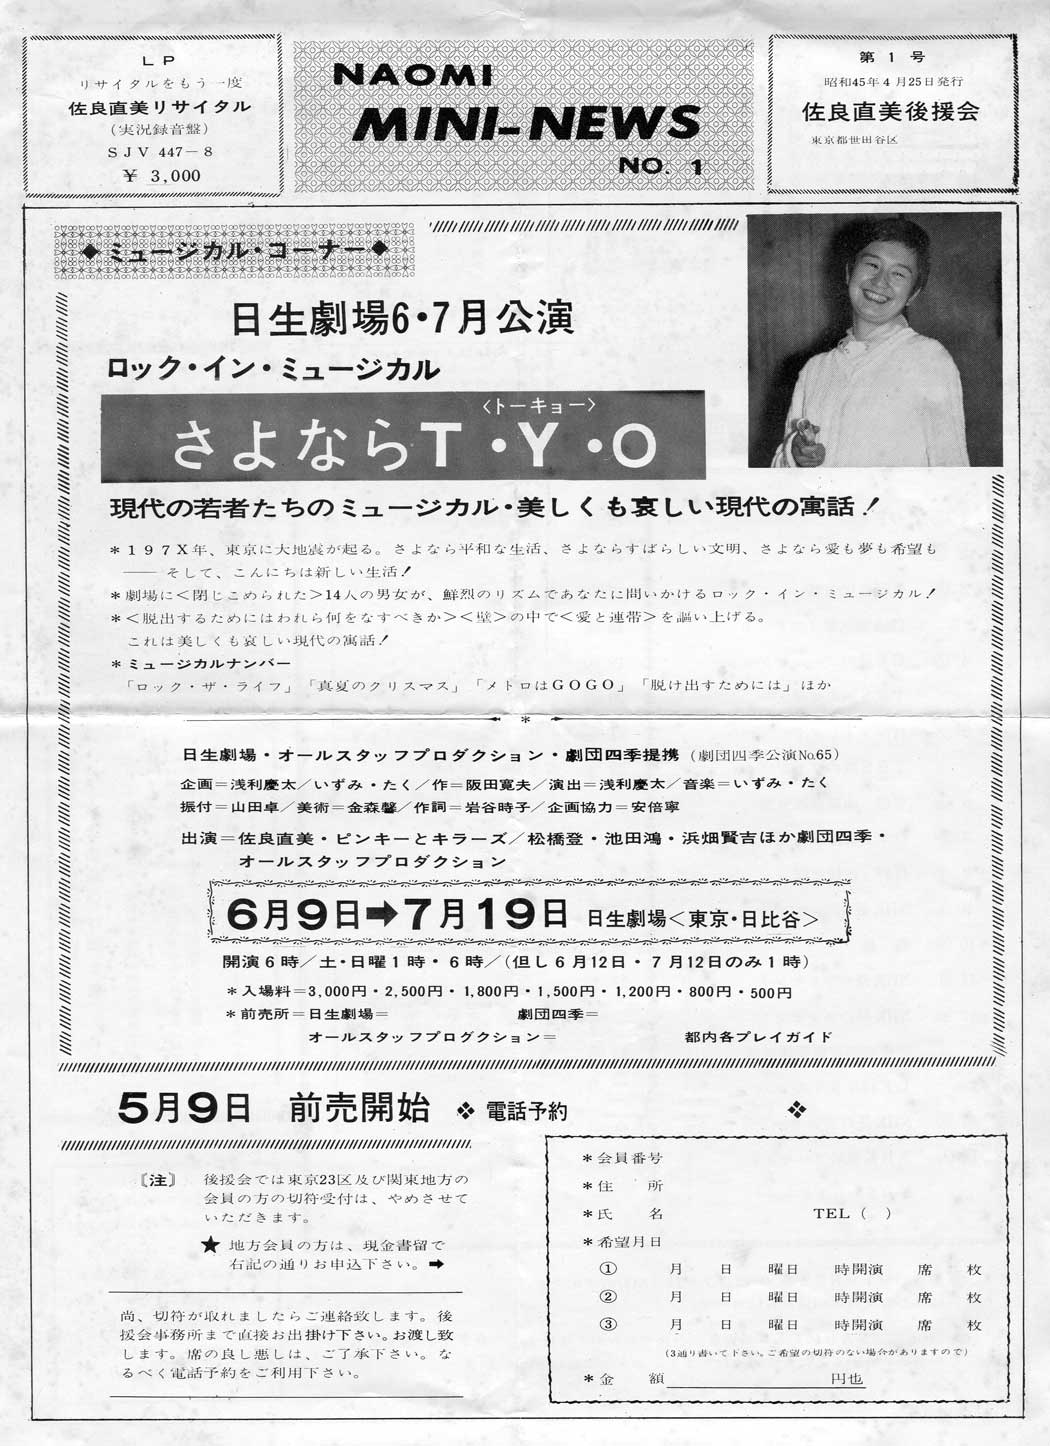 LP
リサイタルをもう一度
佐良直美リサイタル
(実況録音盤)
SJV 447-8
¥ 3,000
NAOMI
MINI-NEWS
NO. 1
第1号
昭和45年4月25日発行
佐良直美後援会
東京都世田谷区
◆ミュージカル・コーナー◆
日生劇場6・7月公演
ロック・イン・ミュージカル
〈トーキョー〉
さよならT・Y・O
現代の若者たちのミュージカル・美しくも哀しい現代の寓話!
*197X年、東京に大地震が起る。さよなら平和な生活、さよならすばらしい文明、さよなら愛も夢も希望も
―― そして、こんにちは新しい生活!
*劇場に<閉じこめられた>14人の男女が、鮮烈のリズムであなたに問いかけるロック・イン・ミュージカル!
*<脱出するためにはわれら何をなすべきか><壁>の中で<愛と連帯>を謳い上げる。
これは美しくも哀しい現代の寓話!
*ミュージカルナンバー
「ロック・ザ・ライフ」「真夏のクリスマス」「メトロはGOGO」「脱け出すためには」ほか
*
日生劇場・オールスタッフプロダクション・劇団四季提携(劇団四季公演No.65)
企画=浅利慶太/いずみ・たく/作=阪田寛夫/演出=浅利慶太/音楽=いずみ・たく
振付=山田卓/美術=金森馨/作詞=岩谷時子/企画協力=安倍寧
出演=佐良直美・ピンキーとキラーズ/松橋登・池田鴻・浜畑賢吉ほか劇団四季・
オールスタッフプロダクション
6月9日➡7月19日 日生劇場<東京・日比谷>
開演6時/土・日曜1時・6時/(但し6月12日・7月12日のみ1時)
*入場料=3,000円・2,500円・1,800円・1,500円・1,200円・800円・500円
*前売所=日生劇場= 劇団四季=
オールスタッフプログクション= 都内各プレイガイド
5月9日 前売開始 ❖ 電話予約 ❖
〔注〕 後援会では東京23区及び関東地方の
会員の方の切符受付は、やめさせて
いただきます。
★ 地方会員の方は、現金書留で
右記の通りお申込下さい。➡
尚、切符が取れましたらご連絡致します。後
援会事務所まで直接お出掛け下さい。お渡し致
します。席の良し悪しは、ご了承下さい。な
るべく電話予約をご利用下さい。
*会員番号
*住 所
*氏 名 TEL( )
*希望月日
① 月 日 曜日 時開演 席 枚
② 月 日 曜日 時開演 席 枚
③ 月 日 曜日 時開演 席 枚
(3通り書いて下さい。ご希望の切符のない場合がありますので)
*金 額 円也